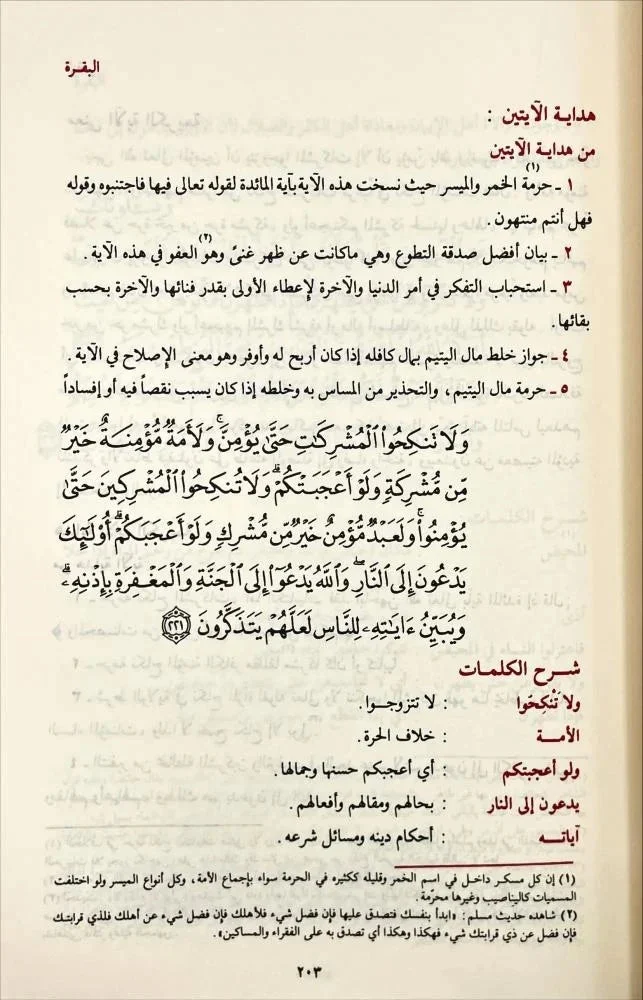 البقرة
هداية الآيتين :
من هداية الآيتين
١ ـ حرمة(١) الخمر والميسر حيث نسخت هذه الآية بآية المائدة لقوله تعالى فيها فاجتنبوه وقوله
فهل أنتم منتهون .
٢ ـ بيان أفضل صدقة التطوع وهي ماكانت عن ظهر غنىً وهو(٢) العفو في هذه الآية .
٣ ـ استحباب التفكر في أمر الدنيا والآخرة لإعطاء الأولى بقدر فنائها والآخرة بحسب
بقائها.
٤ ـ جواز خلط مال اليتيم بمال كافله إذا كان أربح له وأوفر وهو معنى الإصلاح في الآية .
٥ ـ حرمة مال اليتيم، والتحذير من المساس به وخلطه إذا كان يسبب نقصاً فيه أو إفساداً
وَلَا تَنكِحُوا۟ ٱلْمُشْرِكَٰتِ حَتَّىٰ يُؤْمِنَّ ۚ وَلَأَمَةٌ مُّؤْمِنَةٌ خَيْرٌ
مِّن مُّشْرِكَةٍ وَلَوْ أَعْجَبَتْكُمْ ۗ وَلَا تُنكِحُوا۟ ٱلْمُشْرِكِينَ حَتَّىٰ
يُؤْمِنُوا۟ ۚ وَلَعَبْدٌ مُّؤْمِنٌ خَيْرٌ مِّن مُّشْرِكٍ وَلَوْ أَعْجَبَكُمْ ۗ أُو۟لَٰٓئِكَ
يَدْعُونَ إِلَى ٱلنَّارِ ۖ وَٱللَّهُ يَدْعُوٓا۟ إِلَى ٱلْجَنَّةِ وَٱلْمَغْفِرَةِ بِإِذْنِهِۦ ۖ
وَيُبَيِّنُ ءَايَٰتِهِۦ لِلنَّاسِ لَعَلَّهُمْ يَتَذَكَّرُونَ ﴿٢٢١﴾
شرح الكلمات
ولا تَنْكِحَوا : لا تتزوجوا.
الأمـة : خلاف الحرة.
ولو أعجبتكم : أي أعجبكم حسنها وجمالها.
يدعون إلى النار : بحالهم ومقالهم وأفعالهم.
آياتـه : أحكام دينه ومسائل شرعه.
(١) إن كل مسكر داخل في اسم الخمر وقليله ككثيره في الحرمة سواء بإجماع الأمة، وكل أنواع الميسر ولو اختلفت
المسميات كاليناصيب وغيرها محرّمة.
(٢) شاهده حديث مسلم : «ابدأ بنفسك فتصدق عليها فإن فضل شيء فلأهلك فإن فضل شيء عن أهلك فلذي قرابتك
فإن فضل عن ذي قرابتك شيء فهكذا وهكذا أي تصدق به على الفقراء والمساكين».
٢٠٣